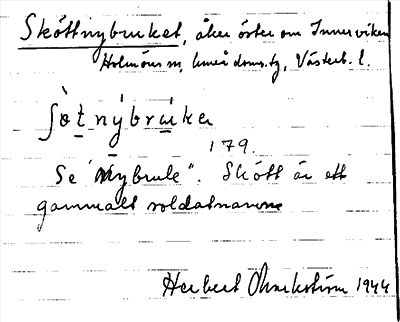 Skóttnybruket, åker öster om Innerviken
Holmöns sn, Umeå doms.tg, Västerb. l.
ʃø̀t nýbru̇ka
179.
Se "Nybruk". Skótt är ett
gammalt soldatnamn
Herbert 1944